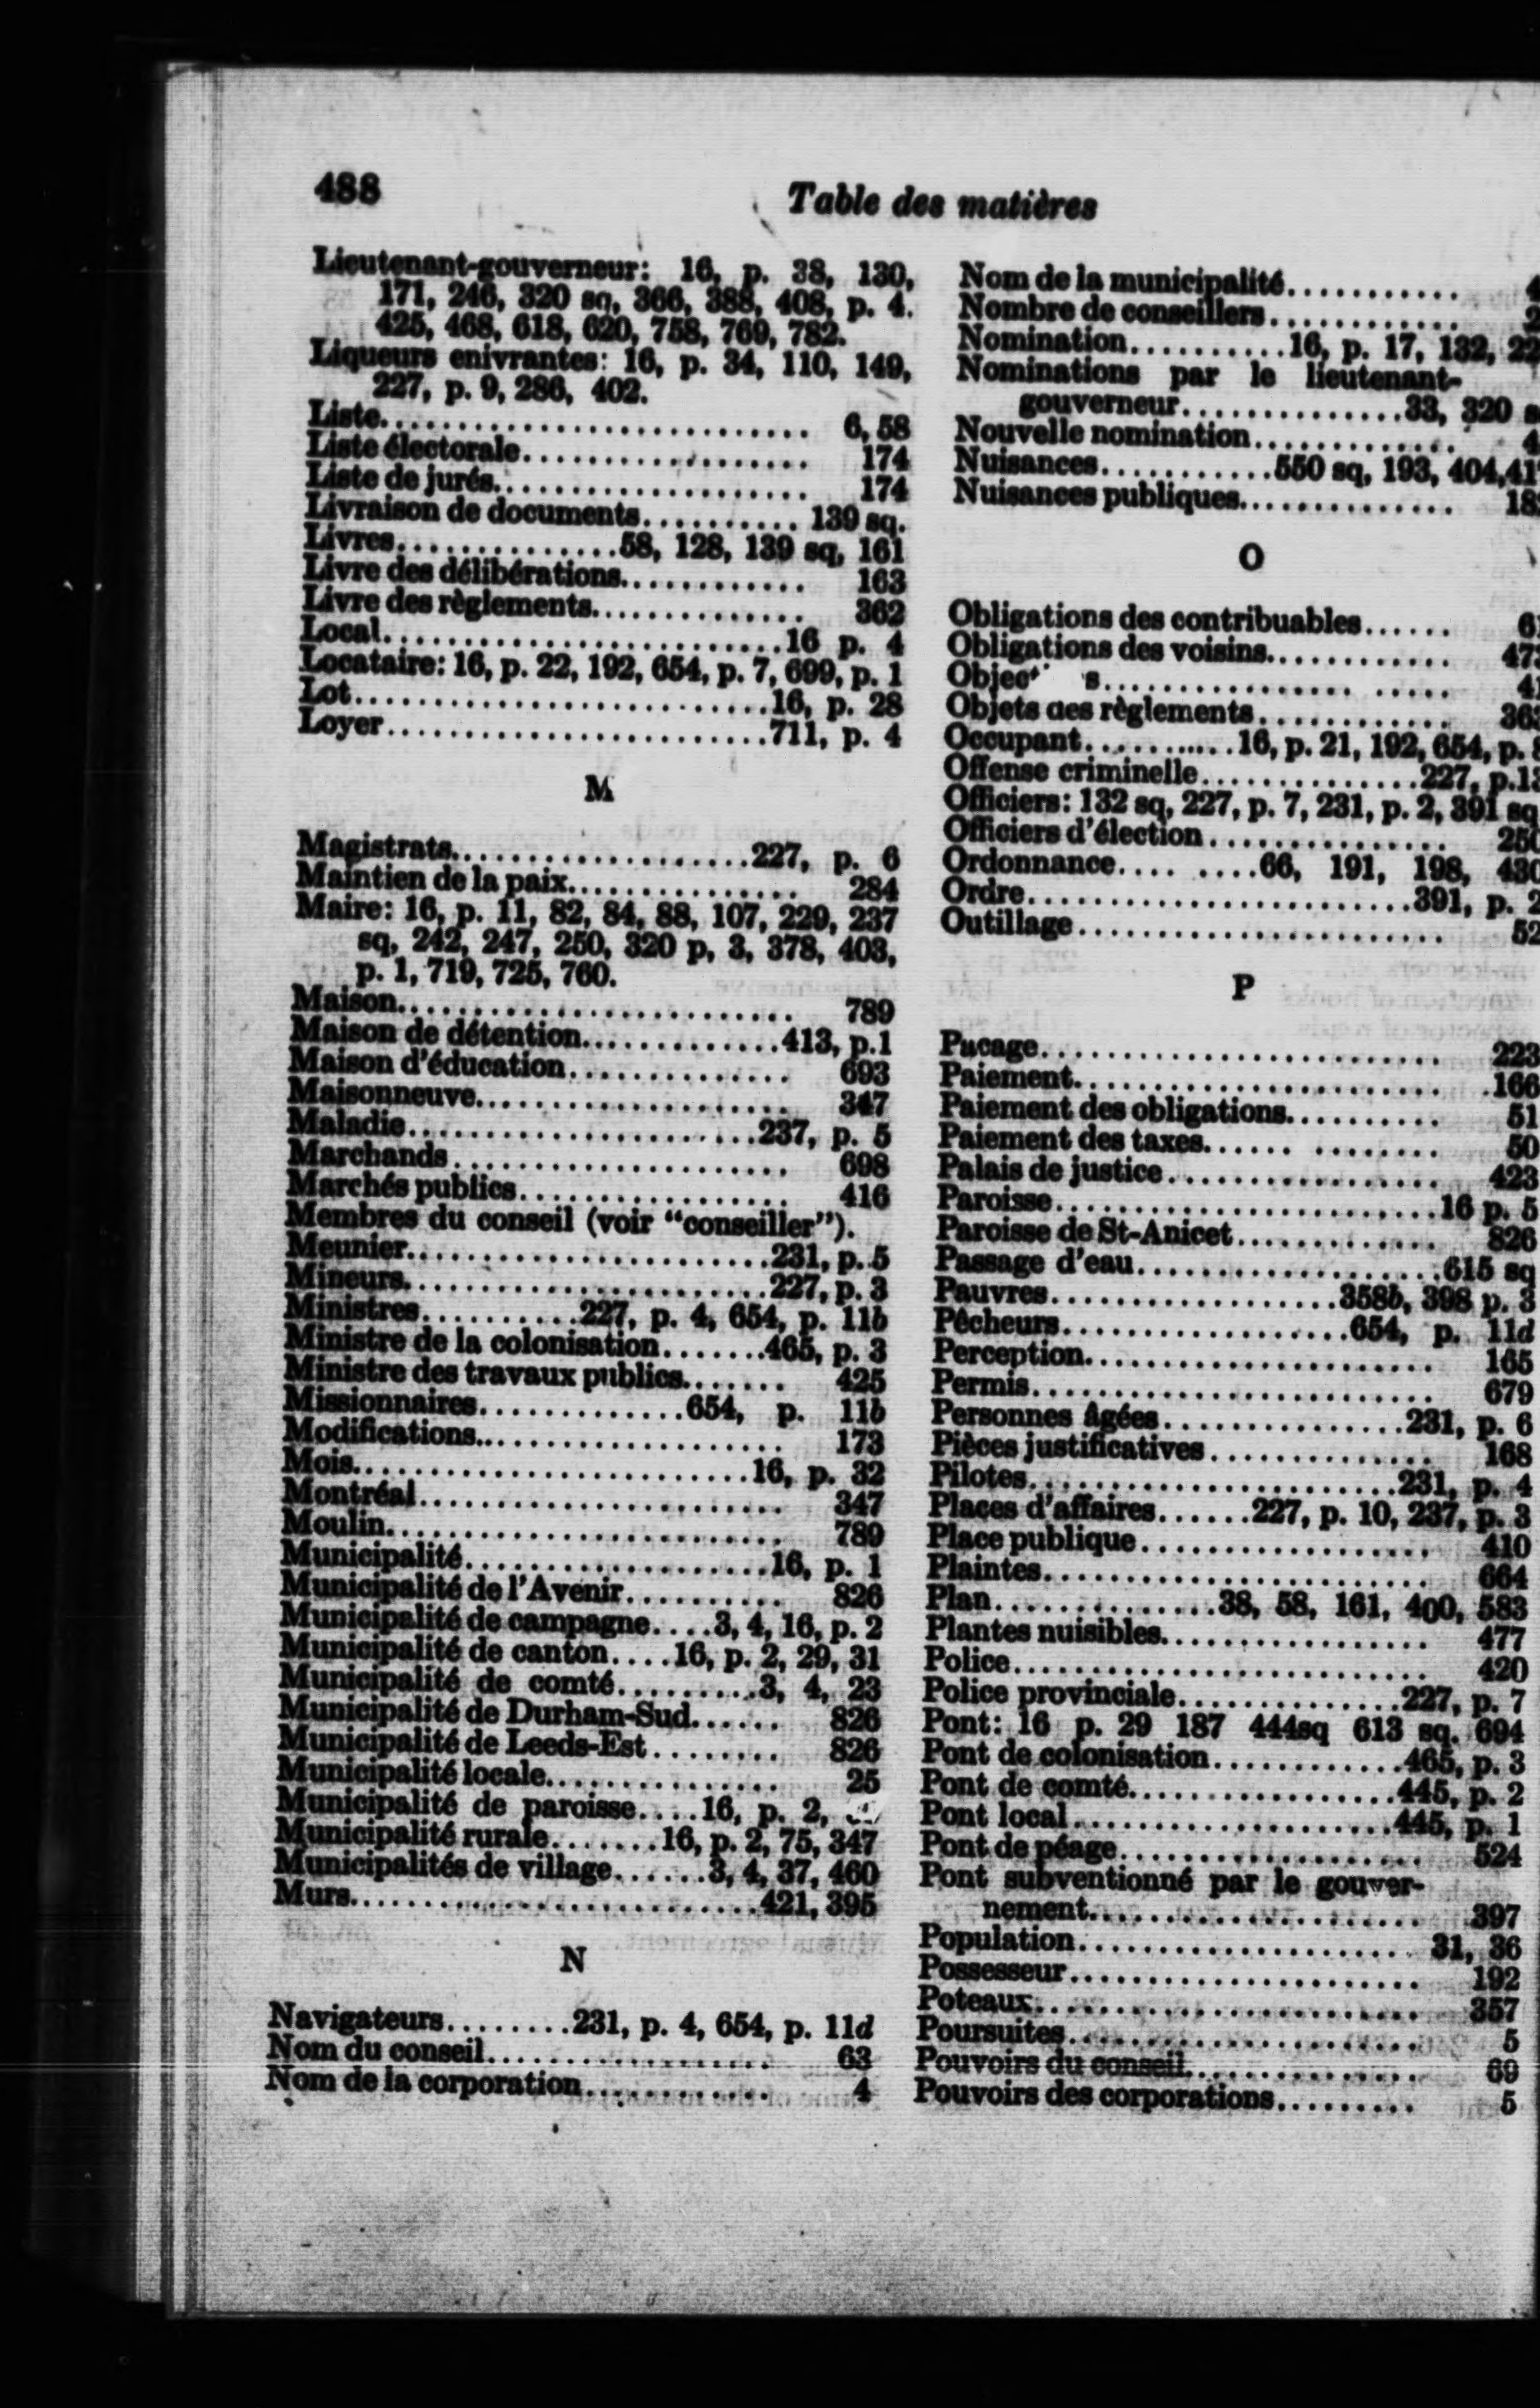 488
Table des matières
Lieutenant-gouverneur: 16, p. 38, 130,
171, 246, 320 sq, 366, 388, 408, p. 4.
425, 468, 618, 620, 758, 769, 782.
Liqueurs enivrantes: 16, p. 34, 110, 149,
227, p. 9, 286, 402.
Liste............................ 6, 58
Liste électorale.................. 174
Liste de jurés.................... 174
Livraison de documents........... 139 sq.
Livres...............58, 128, 139 sq, 161
Livre des délibérations............ 163
Livre des règlements............... 362
Local.........................16 p. 4
Locataire: 16, p. 22, 192, 654, p. 7, 699, p. 1
Lot...........................16, p. 28
Loyer.........................711, p. 4
M
Magistrats...................227, p. 6
Maintien de la paix............... 284
Maire: 16, p. 11, 82, 84, 88, 107, 229, 237
sq, 242, 247, 250, 320 p, 3, 378, 403,
p. 1, 719, 725, 760.
Maison......................... 789
Maison de détention.............413, p.1
Maison d'éducation............... 693
Maisonneuve.................... 347
Maladie.......................237, p. 5
Marchands...................... 698
Marchés publics.................. 416
Membres du conseil (voir "conseiller").
Meunier.......................231, p. 5
Mineurs.......................227, p. 3
Ministres..........227, p. 4, 654, p. 11b
Ministre de la colonisation.......465, p. 3
Ministre des travaux publics....... 425
Missionnaires.............654, p. 11b
Modifications.................... 173
Mois.........................16, p. 32
Montréal....................... 347
Moulin......................... 789
Municipalité...................16, p. 1
Municipalité de l'Avenir.......... 826
Municipalité de campagne....3, 4, 16, p. 2
Municipalité de canton....16, p. 2, 29, 31
Municipalité de comté.........3, 4, 23
Municipalité de Durham-Sud...... 826
Municipalité de Leeds-Est........ 826
Municipalité locale............... 25
Municipalité de paroisse....16, p. 2,
Municipalité rurale.......16, p. 2, 75, 347
Municipalités de village......3, 4, 37, 460
Murs..........................421, 395
N
Navigateurs........231, p. 4, 654, p. 11d
Nom du conseil.................. 63
Nom de la corporation............ 4
Nom de la municipalité...........
Nombre de conseillers............
Nomination..........16, p. 17, 132,
Nominations par le lieutenant-
gouverneur..............33, 320
Nouvelle nomination.............
Nuisances...........550 sq, 193, 404,
Nuisances publiques..............
O
Obligations des contribuables......
Obligations des voisins............
Objets des règlements............
Occupant..........16, p. 21, 192, 654, p.
Offense criminelle..............227,
Officiers: 132 sq, 227, p. 7, 231, p. 2, 391 sq
Officiers d'élection...............
Ordonnance.... ....66, 191, 198,
Ordre........................391, p. 2
Outillage....................... 52
P
Pacage......................... 223
Paiement....................... 166
Paiement des obligations.......... 51
Paiement des taxes...... ........ 50
Palais de justice................. 423
Paroisse........................16 p. 5
Paroisse de St-Anicet............. 826
Passage d'eau...................615 sq
Pauvres..................358b, 398 p. 3
Pêcheurs..................654, p. 11d
Perception...................... 165
Permis......................... 679
Personnes âgées...............231, p. 6
Pièces justificatives.............. 168
Pilotes.......................231, p. 4
Places d'affaires......227, p. 10, 237, p. 3
Place publique.................. 410
Plaintes........................ 664
Plan..............38, 58, 161, 400, 583
Plantes nuisibles................. 477
Police.......................... 420
Police provinciale..............227, p. 7
Pont: 16 p. 29 187 444sq 613 sq. 694
Pont de colonisation............465, p. 3
Pont de comté.................445, p. 2
Pont local....................445, p. 1
Pont de péage................... 524
Pont subventionné par le gouver-
nement..................... 397
Population..................... 31, 36
Possesseur...................... 192
Poteaux........................ 357
Poursuites...................... 5
Pouvoirs du conseil............... 69
Pouvoirs des corporations......... 5